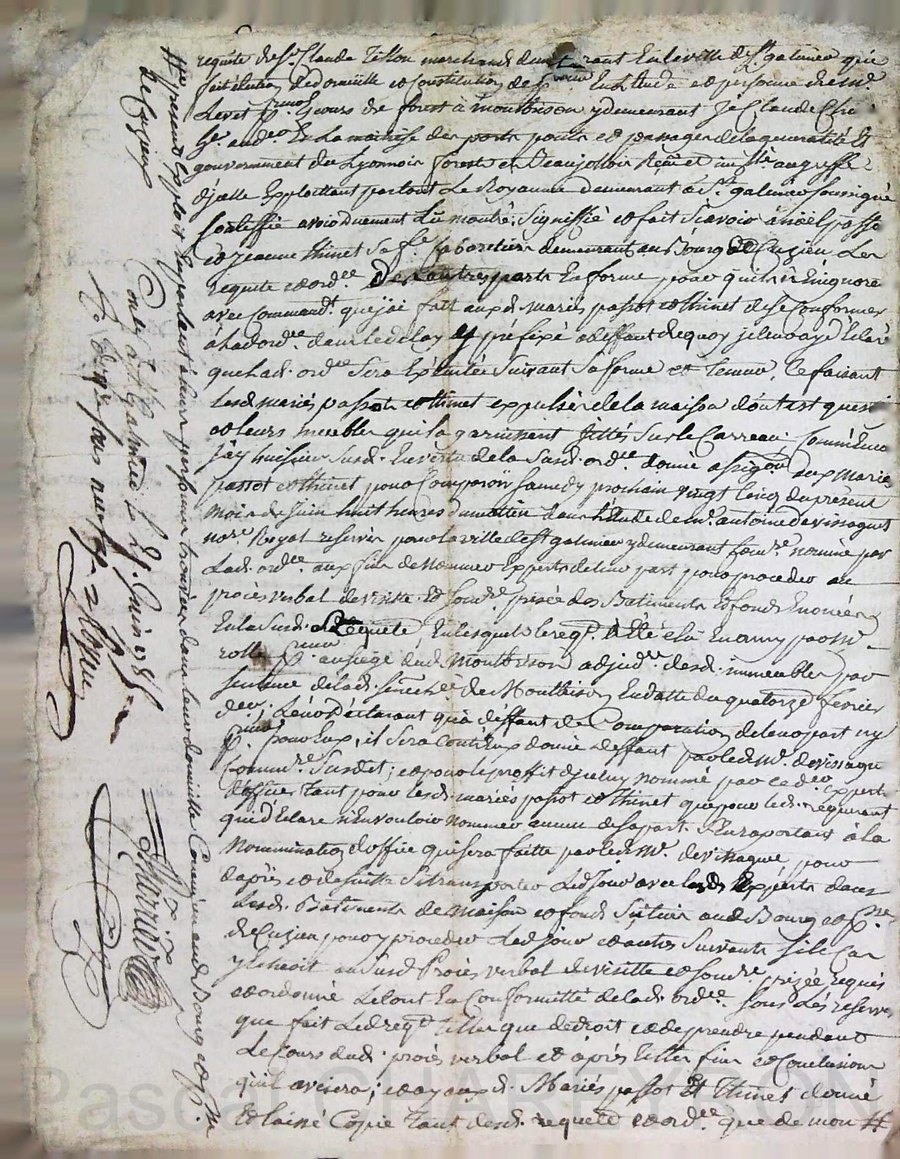 requête de Sr. Claude Tillon marchand demeurant en la ville de St. galmier qui
fait élection de domicille et constitution de procureur en l'étude et personne de Me.
Levet pr. ès cours de forest à montbrison y demeurant Je Claude
hr. audr. En la maitrise des ports ponts et passages de la generalité &
gouvernement du Lyonnois forest et Beaujollois Reçu et au greffe
d'jcelle Exploittant partout Le Royaume demeurant à St. galmier soussigné
certiffie avoir duement montré, signiffié et fait scavoir à noël passot
et jeanne thinet sa fe. cabaretiers demeurant au Bourg de Cuzieu Les
requête et ordce. Des autres parts En forme pour qu'ils n'en ignore
avec command. que j'ai fait auxd. mariés passot et thinet de se Conformer
à lad ordce. dans le delay y préfixé à deffaut de quoy je leur ay déclaré
que lad. ordce. sera Executée suivant sa forme et teneur, Ce faisant
Lesd. mariés passot et thinet expulsés de la maison dont est question
et leurs meubles qui la garnissent jettés sur le Carreau. Comm'encor
j'ay huissier susd. En vertu de la susd. ordce. donné assignon. aux mariés
passot et thinet pour Comparoir samedy prochain vingt cinq du present
mois de juin huit heures du matin dans l'étude de me. antoine devissaguet
nore. Royal reservé pour la ville de st galmier y demeurant Commre. nommé par
Lad. ordce. aux fins de Nommer Experts de leur part pour proceder au
procès verbal de visite et sommre. prisée des Batiments et fonds Enoncés
En la susd. Requête Ensequels le reqt. à été élu En amy par Me.
rolle pr. au siège dud Montbrison adjudre. desd. immeubles par
sentence de lad. senéchée. de Montbrison En datte du quatorze fevrier
der. Leur déclarant qu'à deffaut de Comparution de leur part ny
pr. pour Eux, il sera Contr'Eux donné deffaut par led Me. devissaguet
Commre. susdit; et pour le proffit d'jceluy nommé par ce der. Expert
d'office tant pour lesd. mariés passot et thinet que pour led. requerant
qui déclare n'En vouloir nommer aucun de sa part s'En raportant à la
Nommination d'office qui sera faitte par led Me. devissaguet pour
d'après et de suitte se transporter Led Jour avec lesd. Experts dans
Lesd. Batiments de Maison et fonds scitués aud Bourg et pse.
de Cuzieu pour y proceder Led jour et autres suivants si le Cas
y Echoit au susd Procès verbal de visitte et sommre. prizée requis
et ordonné Le tout En Conformitté de lad. ordce. sous Les reserves
que fait Led reqt. telles que de droit et de prendre pendant
Le Cours dud. procès verbal et après telles fins et Conclusions
qu'il avisera; et ay auxd. Mariés passot Et thinet donné
et laissé Copie tant desd. requête et ordce. que de mon #
# present Exploit En parlant à leurs personnes trouvés dans leur domicille Comm'en aud Bourg et pse.
de Cuzieu
Conlé à St. Galmier Le 21 Juin
R. dix sols neuf
Pascal CHAREYRON